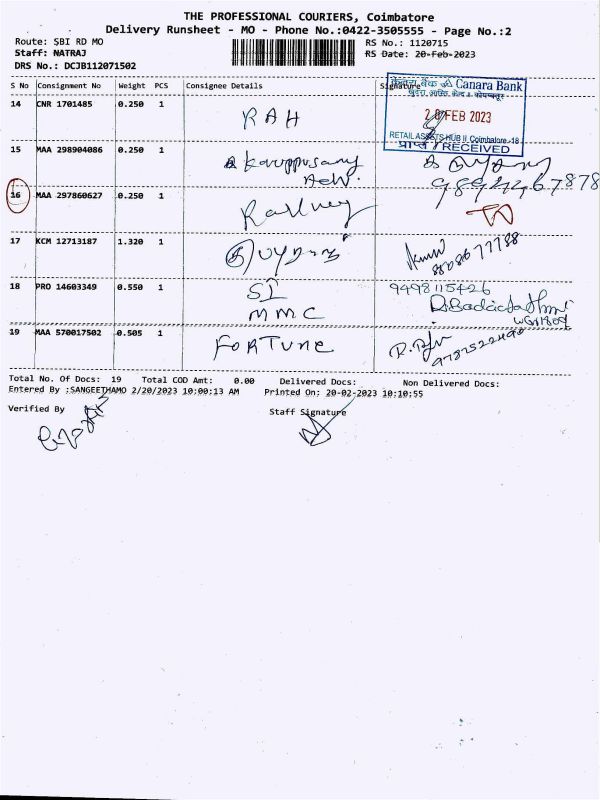 THE PROFESSIONAL COURIERS, Coimbatore
Delivery Runsheet - MO - Phone No.:0422-3505555 - Page No.:2
Route: SBI RD MO
RS No.: 1120715
Staff: NATRAJ
RS Date: 20-Feb-2023
DRS No.: DCJB112071502
S No Consignment No Weight PCS Consignee Details Signature
केनरा बैंक Canara Bank
20 FEB 2023
RETAIL ASSETS HUB II, Coimbatore -18
प्राप्त / RECEIVED
14 CNR 1701485 0.250 1 RAH
15 MAA 298904086 0.250 1 Karuppusamy
Adv.
9894467878
16 MAA 297860627 0.250 1 Railney
17 KCM 12713187 1.320 1
8808677788
18 PRO 14603349 0.550 1 SI
MMC
9498115426
19 MAA 570017502 0.505 1 FORTUNE
Total No. Of Docs: 19 Total COD Amt: 0.00 Delivered Docs: Non Delivered Docs:
Entered By :SANGEETHAMO 2/20/2023 10:00:13 AM Printed On: 20-02-2023 10:10:55
Verified By Staff Signature